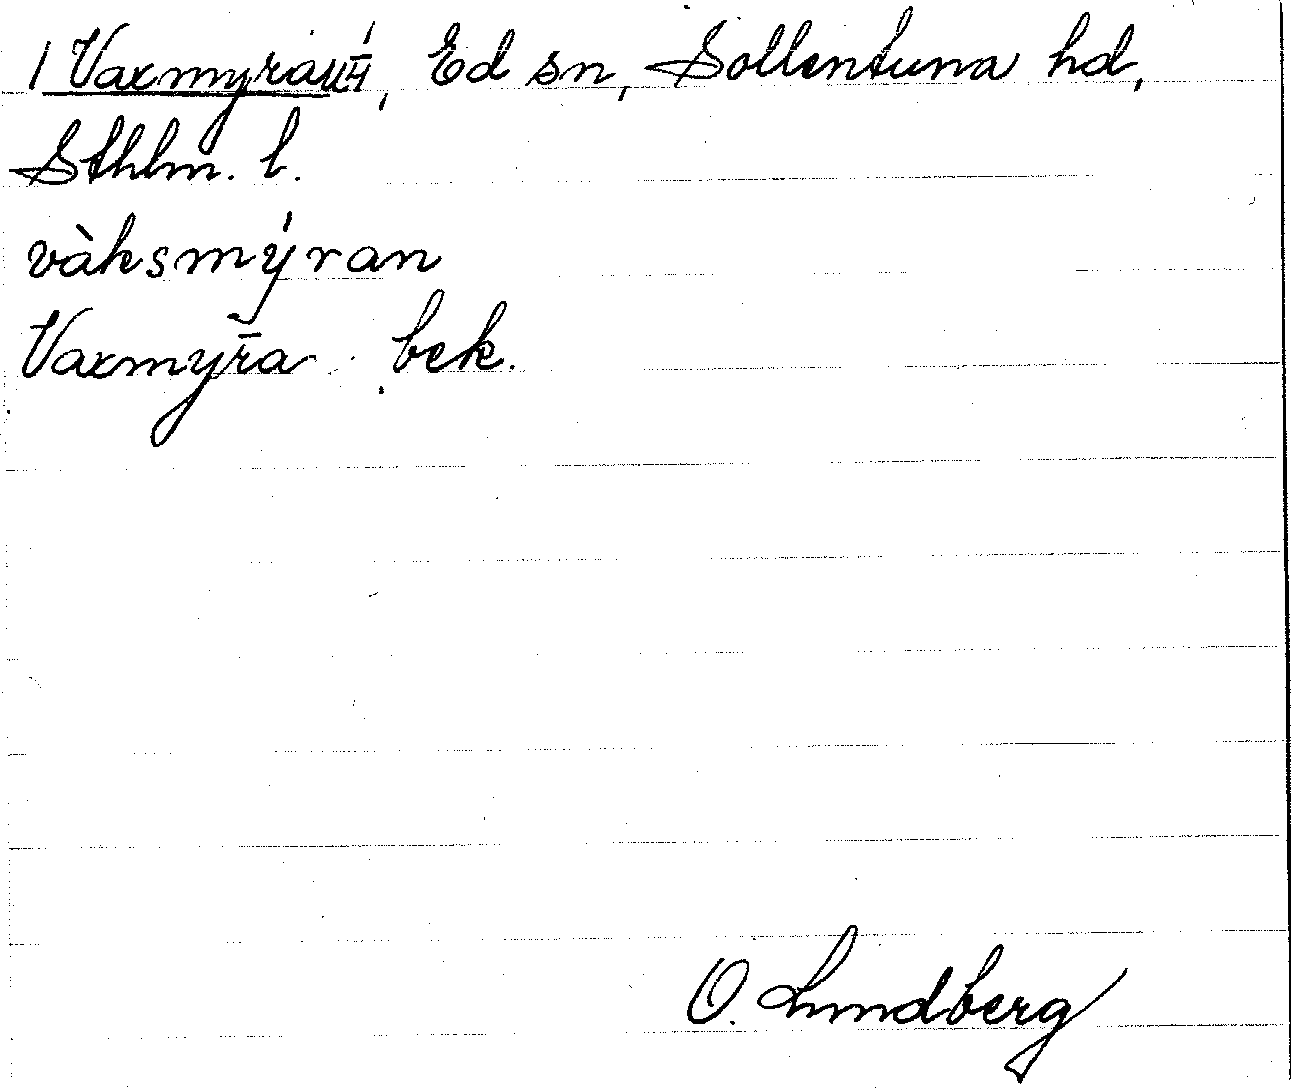 Vaxmyra, Ed sn, Sollentuna hd,
Sthlm. l.
vàksmýran
Vaxmyra bek.
O. Lundberg